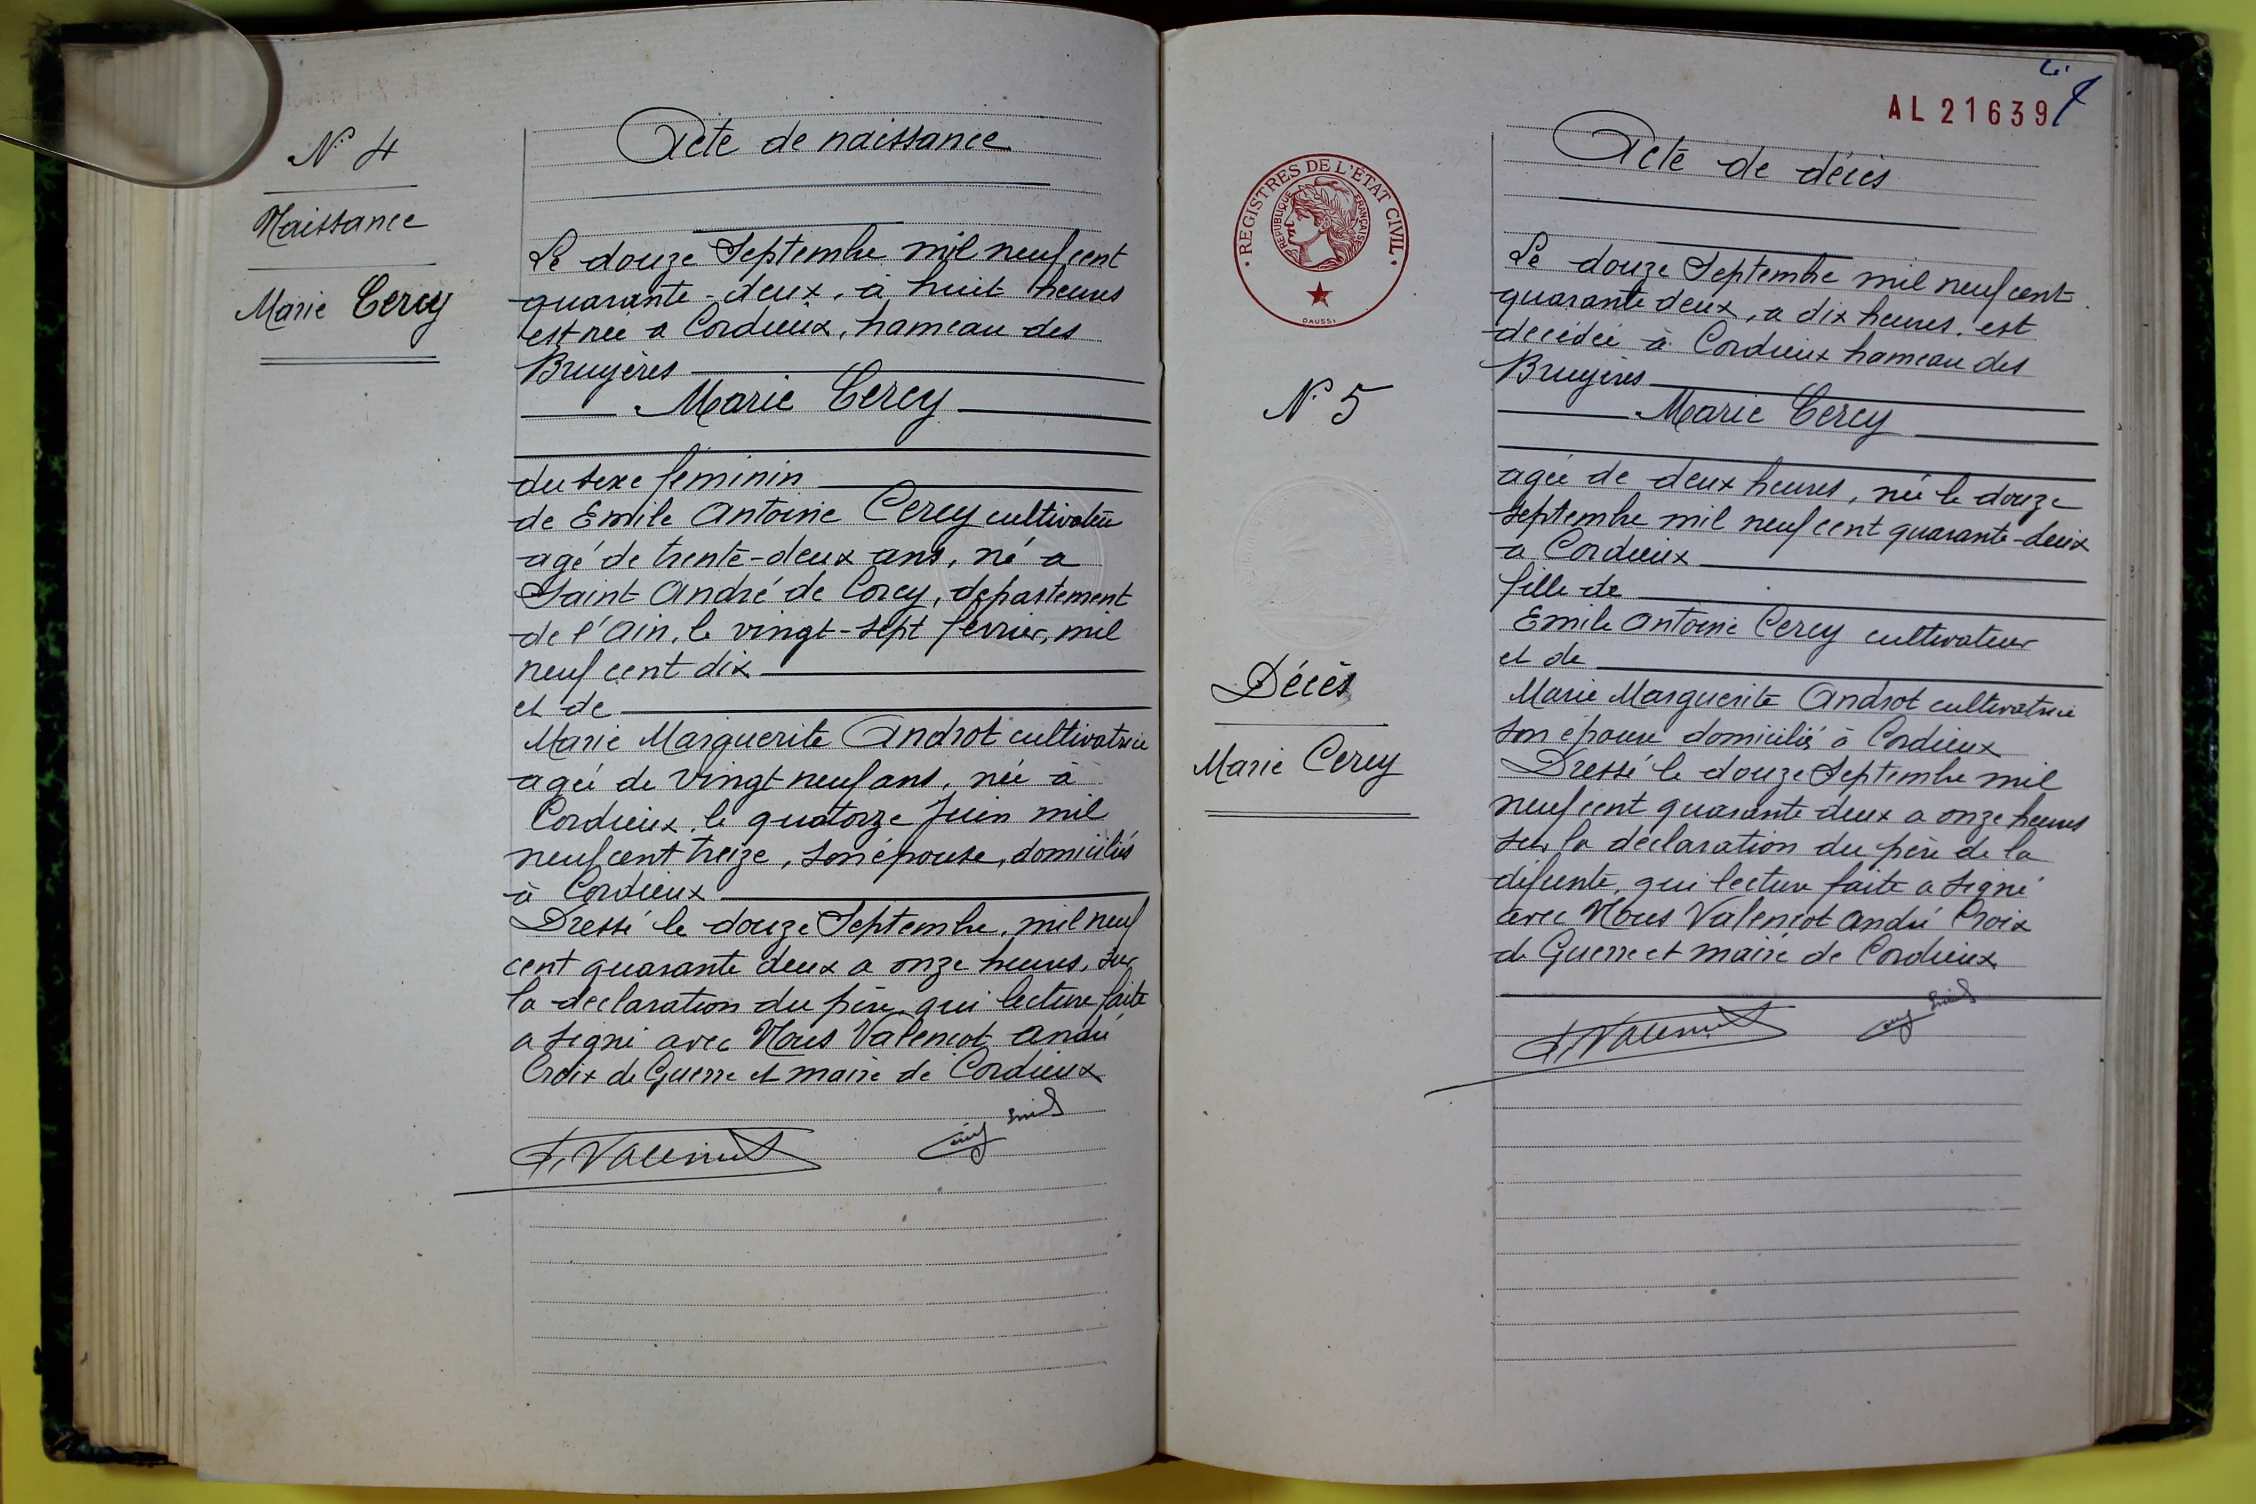 N° 4
Naissance
Marie Cercy
Acte de naissance
Le douze Septembre mil neuf cent
quarante-deux, à huit heures
est née a Cordieux, hameau des
Bruyères
Marie Cercy
du sexe féminin
de Emile Antoine Cercy cultivateur
agé de trente-deux ans, né a
Saint André de Corcy, departement
de l'Ain, le vingt-sept février, mil
neuf cent dix
et de
Marie Marguerite Androt cultivatrice
agée de vingt neuf ans, née à
Cordieux, le quatorze Juin mil
neuf cent treize, son épouse, domiciliés
à Cordieux
Dressé le douze Septembre, mil neuf
cent quarante deux a onze heures, sur
la declaration du père qui lecture faite
a signé avec Nous Valencot André
Croix de Guerre et maire de Cordieux
A. Valencot
Cercy Emile
AL 21639
REGISTRES DE L'ETAT CIVIL
REPUBLIQUE FRANÇAISE
DAUSSI
N° 5
Décès
Marie Cercy
Acte de décès
Le douze Septembre mil neuf cent
quarante deux, a dix heures. est
decédée à Cordieux hameau des
Bruyères
Marie Cercy
agée de deux heures, née le douze
septembre mil neuf cent quarante-deux
a Cordieux
fille de
Emile Antoine Cercy cultivateur
et de
Marie Marguerite Androt cultivatrice
son épouse domiciliés à Cordieux
Dressé le douze Septembre mil
neuf cent quarante deux a onze heures
sur la déclaration du père de la
défunte, qui lecture faite a signé
avec Nous Valencot André Croix
de Guerre et maire de Cordieux
A. Valencot
Cercy Emile